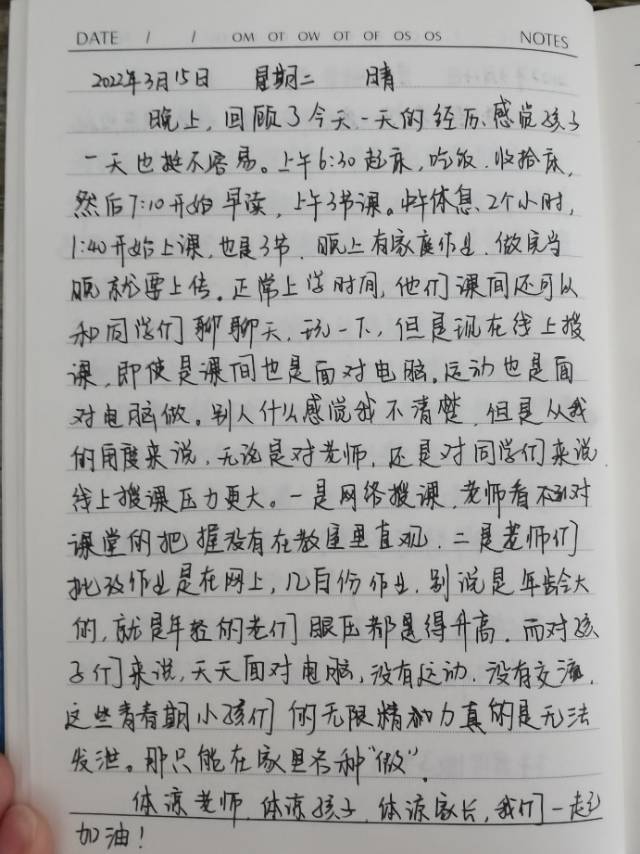 DATE / / OM OT OW OT OF OS OS NOTES
2022年3月15日 星期二 晴
晚上，回顾了今天一天的经历，感觉孩子
一天也挺不容易。上午6:30起床，吃饭、收拾床，
然后7:10开始早读，上午3节课。中午休息、2个小时，
1:40开始上课，也是3节、晚上有家庭作业、做完当
晚就要上传。正常上学时间，他们课间还可以
和同学们聊聊天，玩一下，但是现在线上授
课，即使是课间也是面对电脑。运动也是面
对电脑做。别人什么感觉我不清楚，但是从我
的角度来说，无论是对老师，还是对同学们来说，
线上授课压力更大。一是网络授课，老师看不到对
课堂的把握没有在教室里直观、二是老师们
批改作业是在网上，几百份作业，别说是年龄大
的，就是年轻的老们眼压都是得升高。而对孩
子们来说，天天面对电脑，没有运动、没有交流，
这些青春期小孩们的无限精神力真的是无法
发泄。那只能在家里各种“做”。
体谅老师、体谅孩子、体谅家长，我们一起
加油！